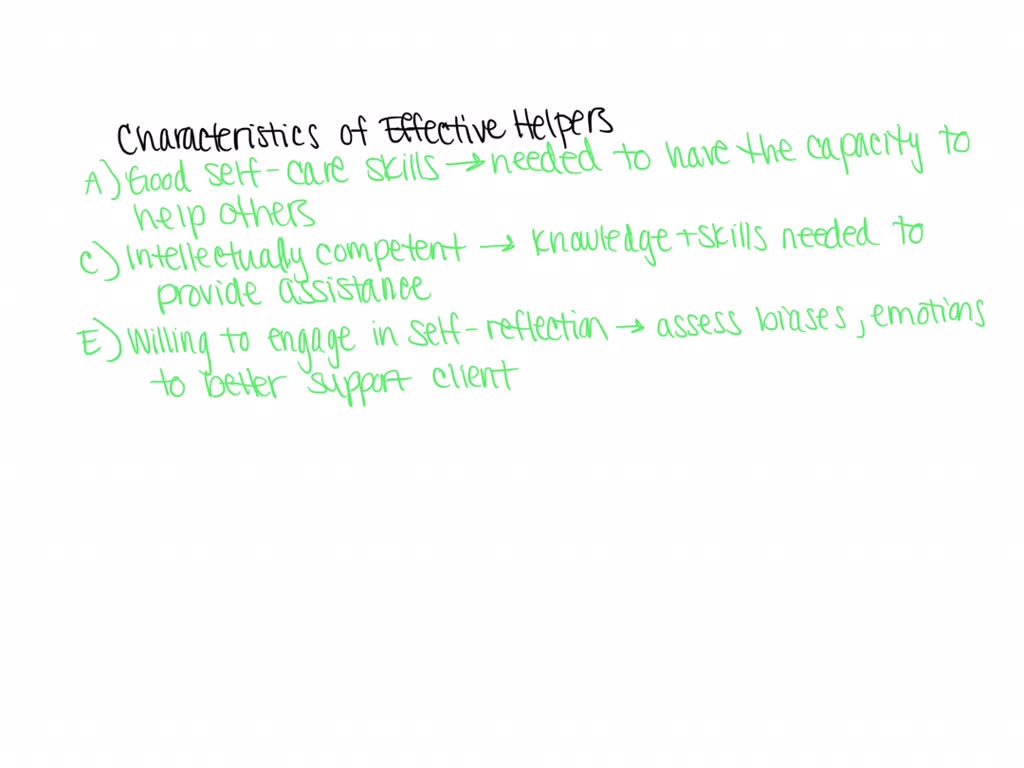 Characteristics of Effective Helpers
A) Good self-care skills → needed to have the capacity to
help others
C) Intellectually competent → knowledge + skills needed to
provide assistance
E) Willing to engage in self-reflection → assess biases, emotions
to better support client